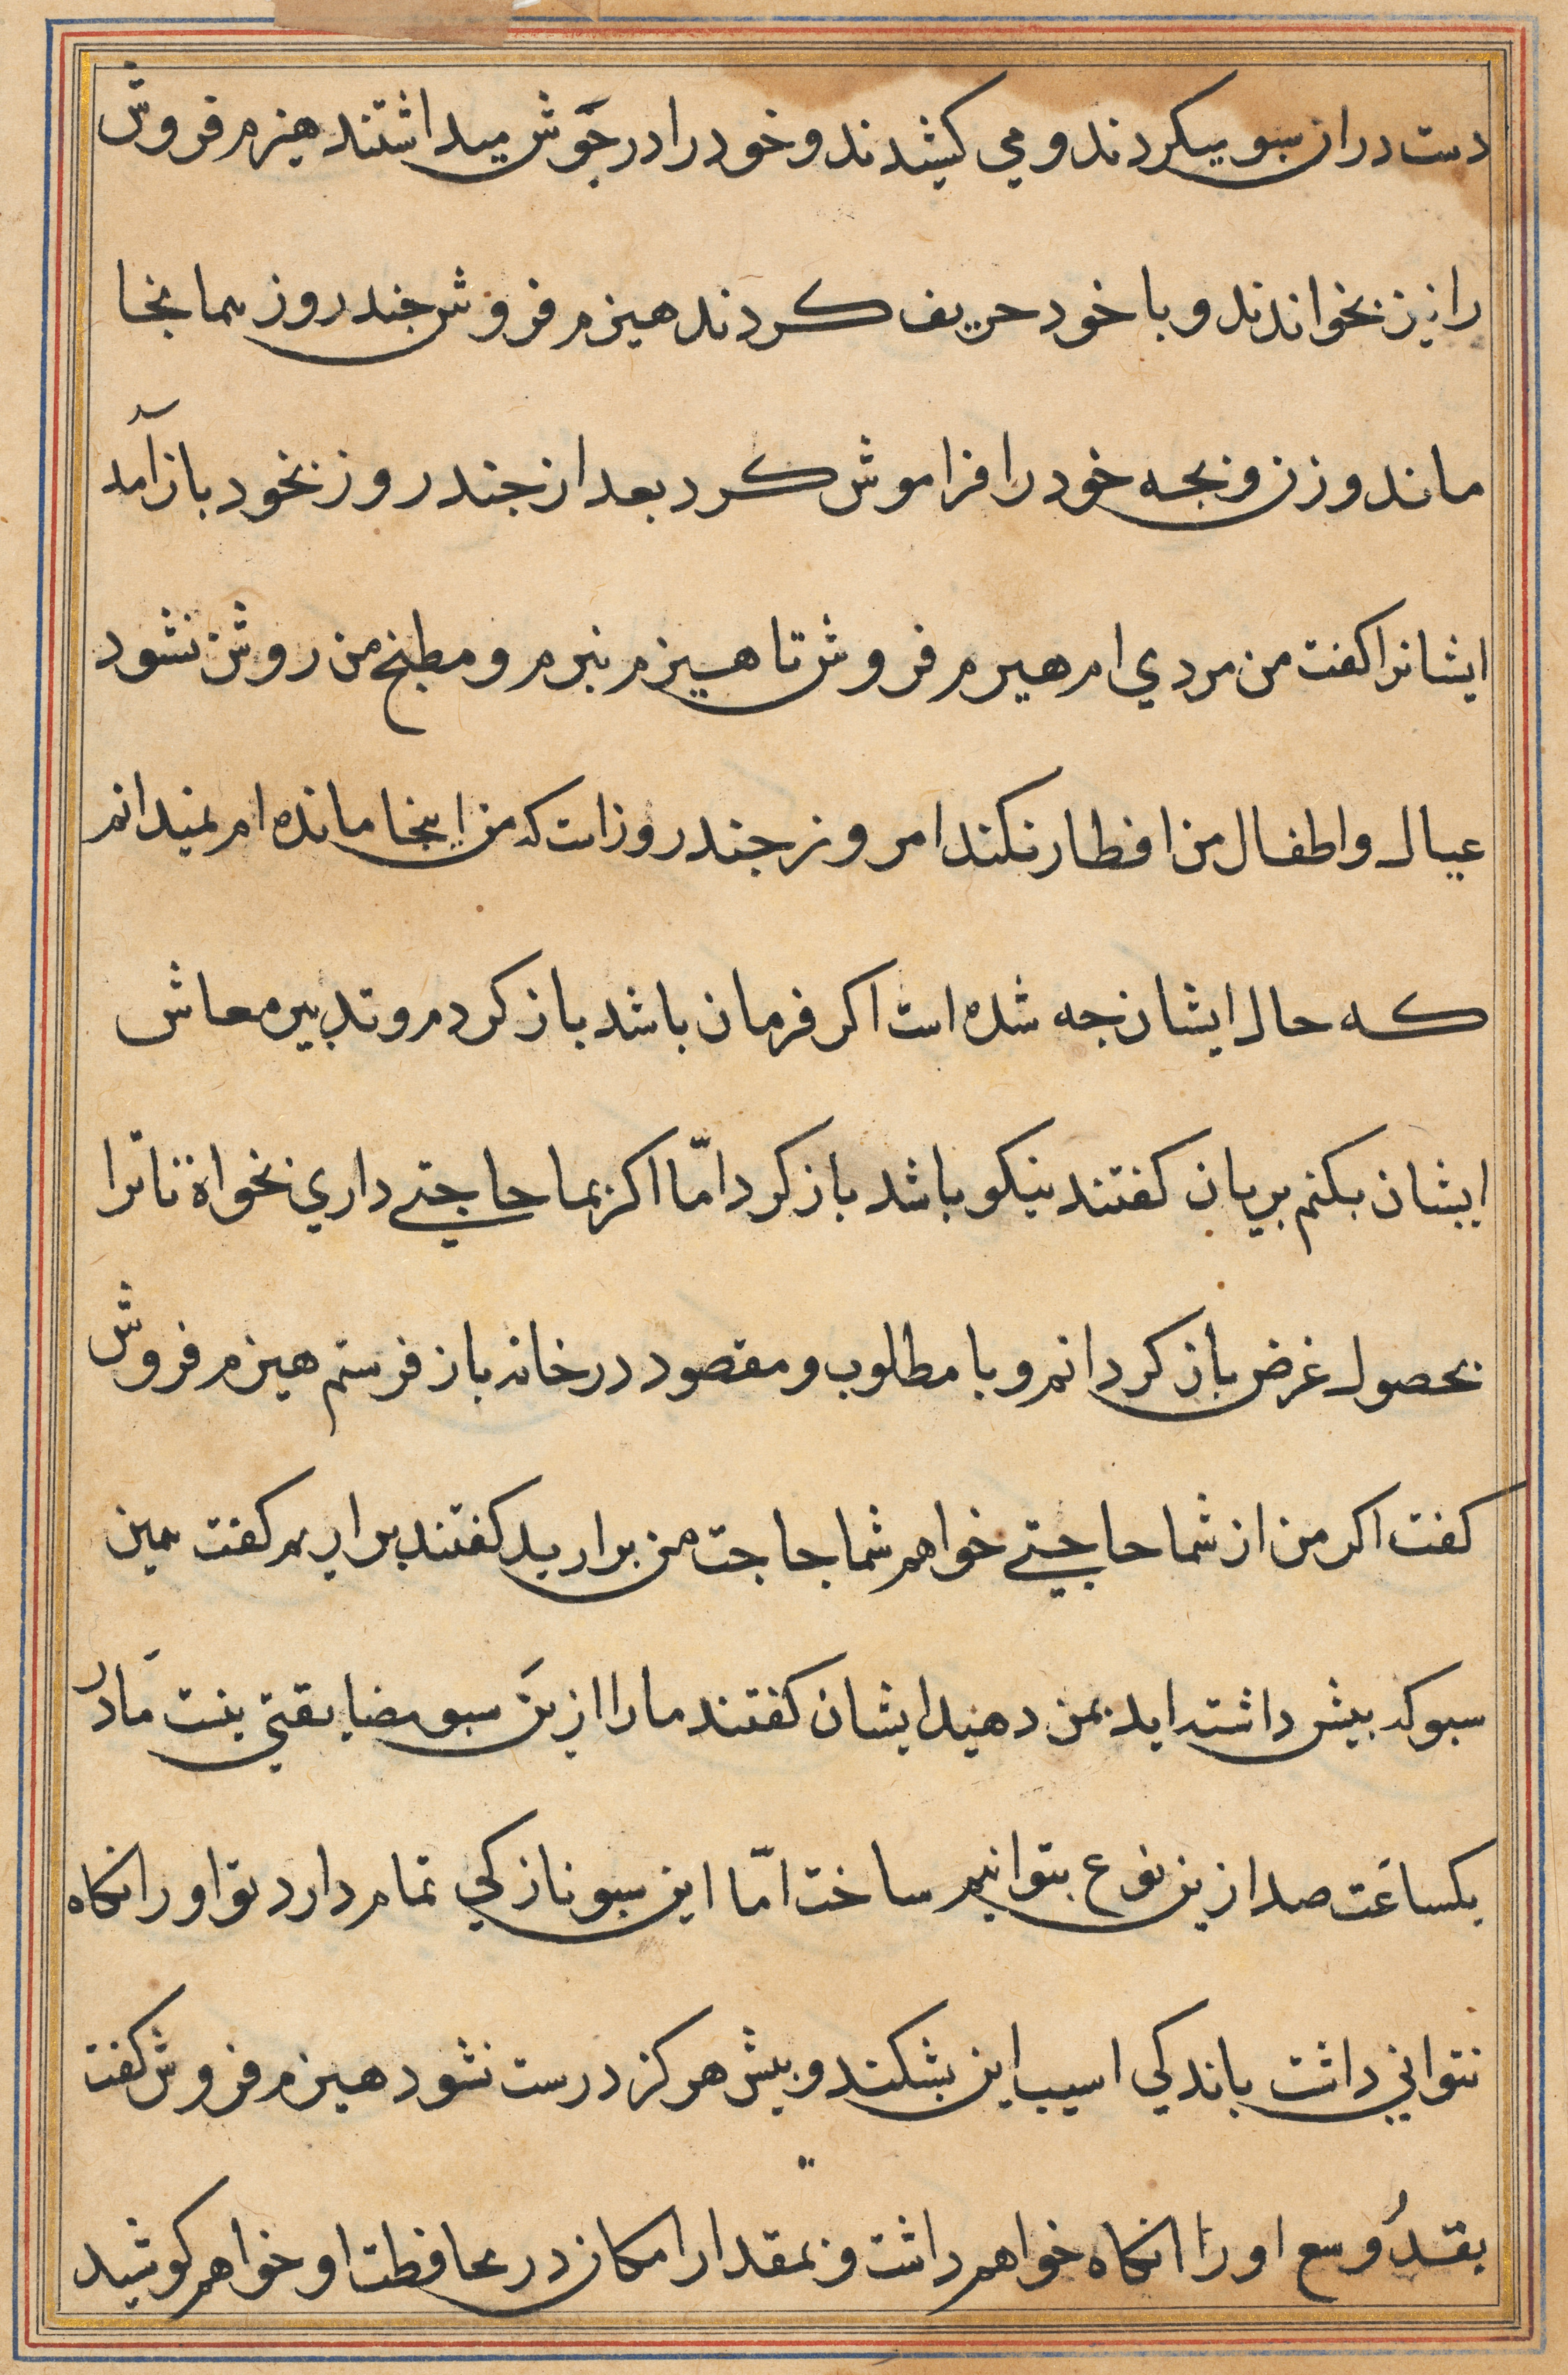 دست دران سبو میکردند و می کشیدند و خود را در جوش میداشتند هیزم فروش
را نیز بخواندند و با خود حریف کردند هیزم فروش جند روز همانجا
ماند و زن و بجه خود را فراموش کرد بعد از جند روز بخود باز آمد
ایشانرا کفت من مردی ام هیزم فروش تا هیزم نبرم و مطبخ من روشن نشود
عیال و اطفال من افطار نکند امروز جند روز است که من اینجا مانده ام نمیدانم
که حال ایشان جه شده است اکر فرمان باشد باز کردم و تدبیر معاش
ایشان بکنم پریان کفتند نیکو باشد باز کرد امّا اکر بما حاجتی داری بخواه تا ترا
بحصول غرض باز کردانم و با مطلوب و مقصود در خانه باز فرستم هیزم فروش
کفت اکر من از شما حاجتی خواهم شما حاجت من برارید کفتند براریم کفت همین
سبو که پیش داشته اید بمن دهید ایشان کفتند ما را ازین سبو مضایقتی نیست ما در
یکساعت صد ازین نوع بتوانیم ساخت امّا این سبو نازکی تمام دارد تو او را نکاه
نتوانی داشت باندکی اسیب این بشکند و بیش هرکز درست نشود هیزم فروش کفت
بقدر وسع او را نکاه خواهم داشت و بمقدار امکان در محافظت او خواهم کوشید